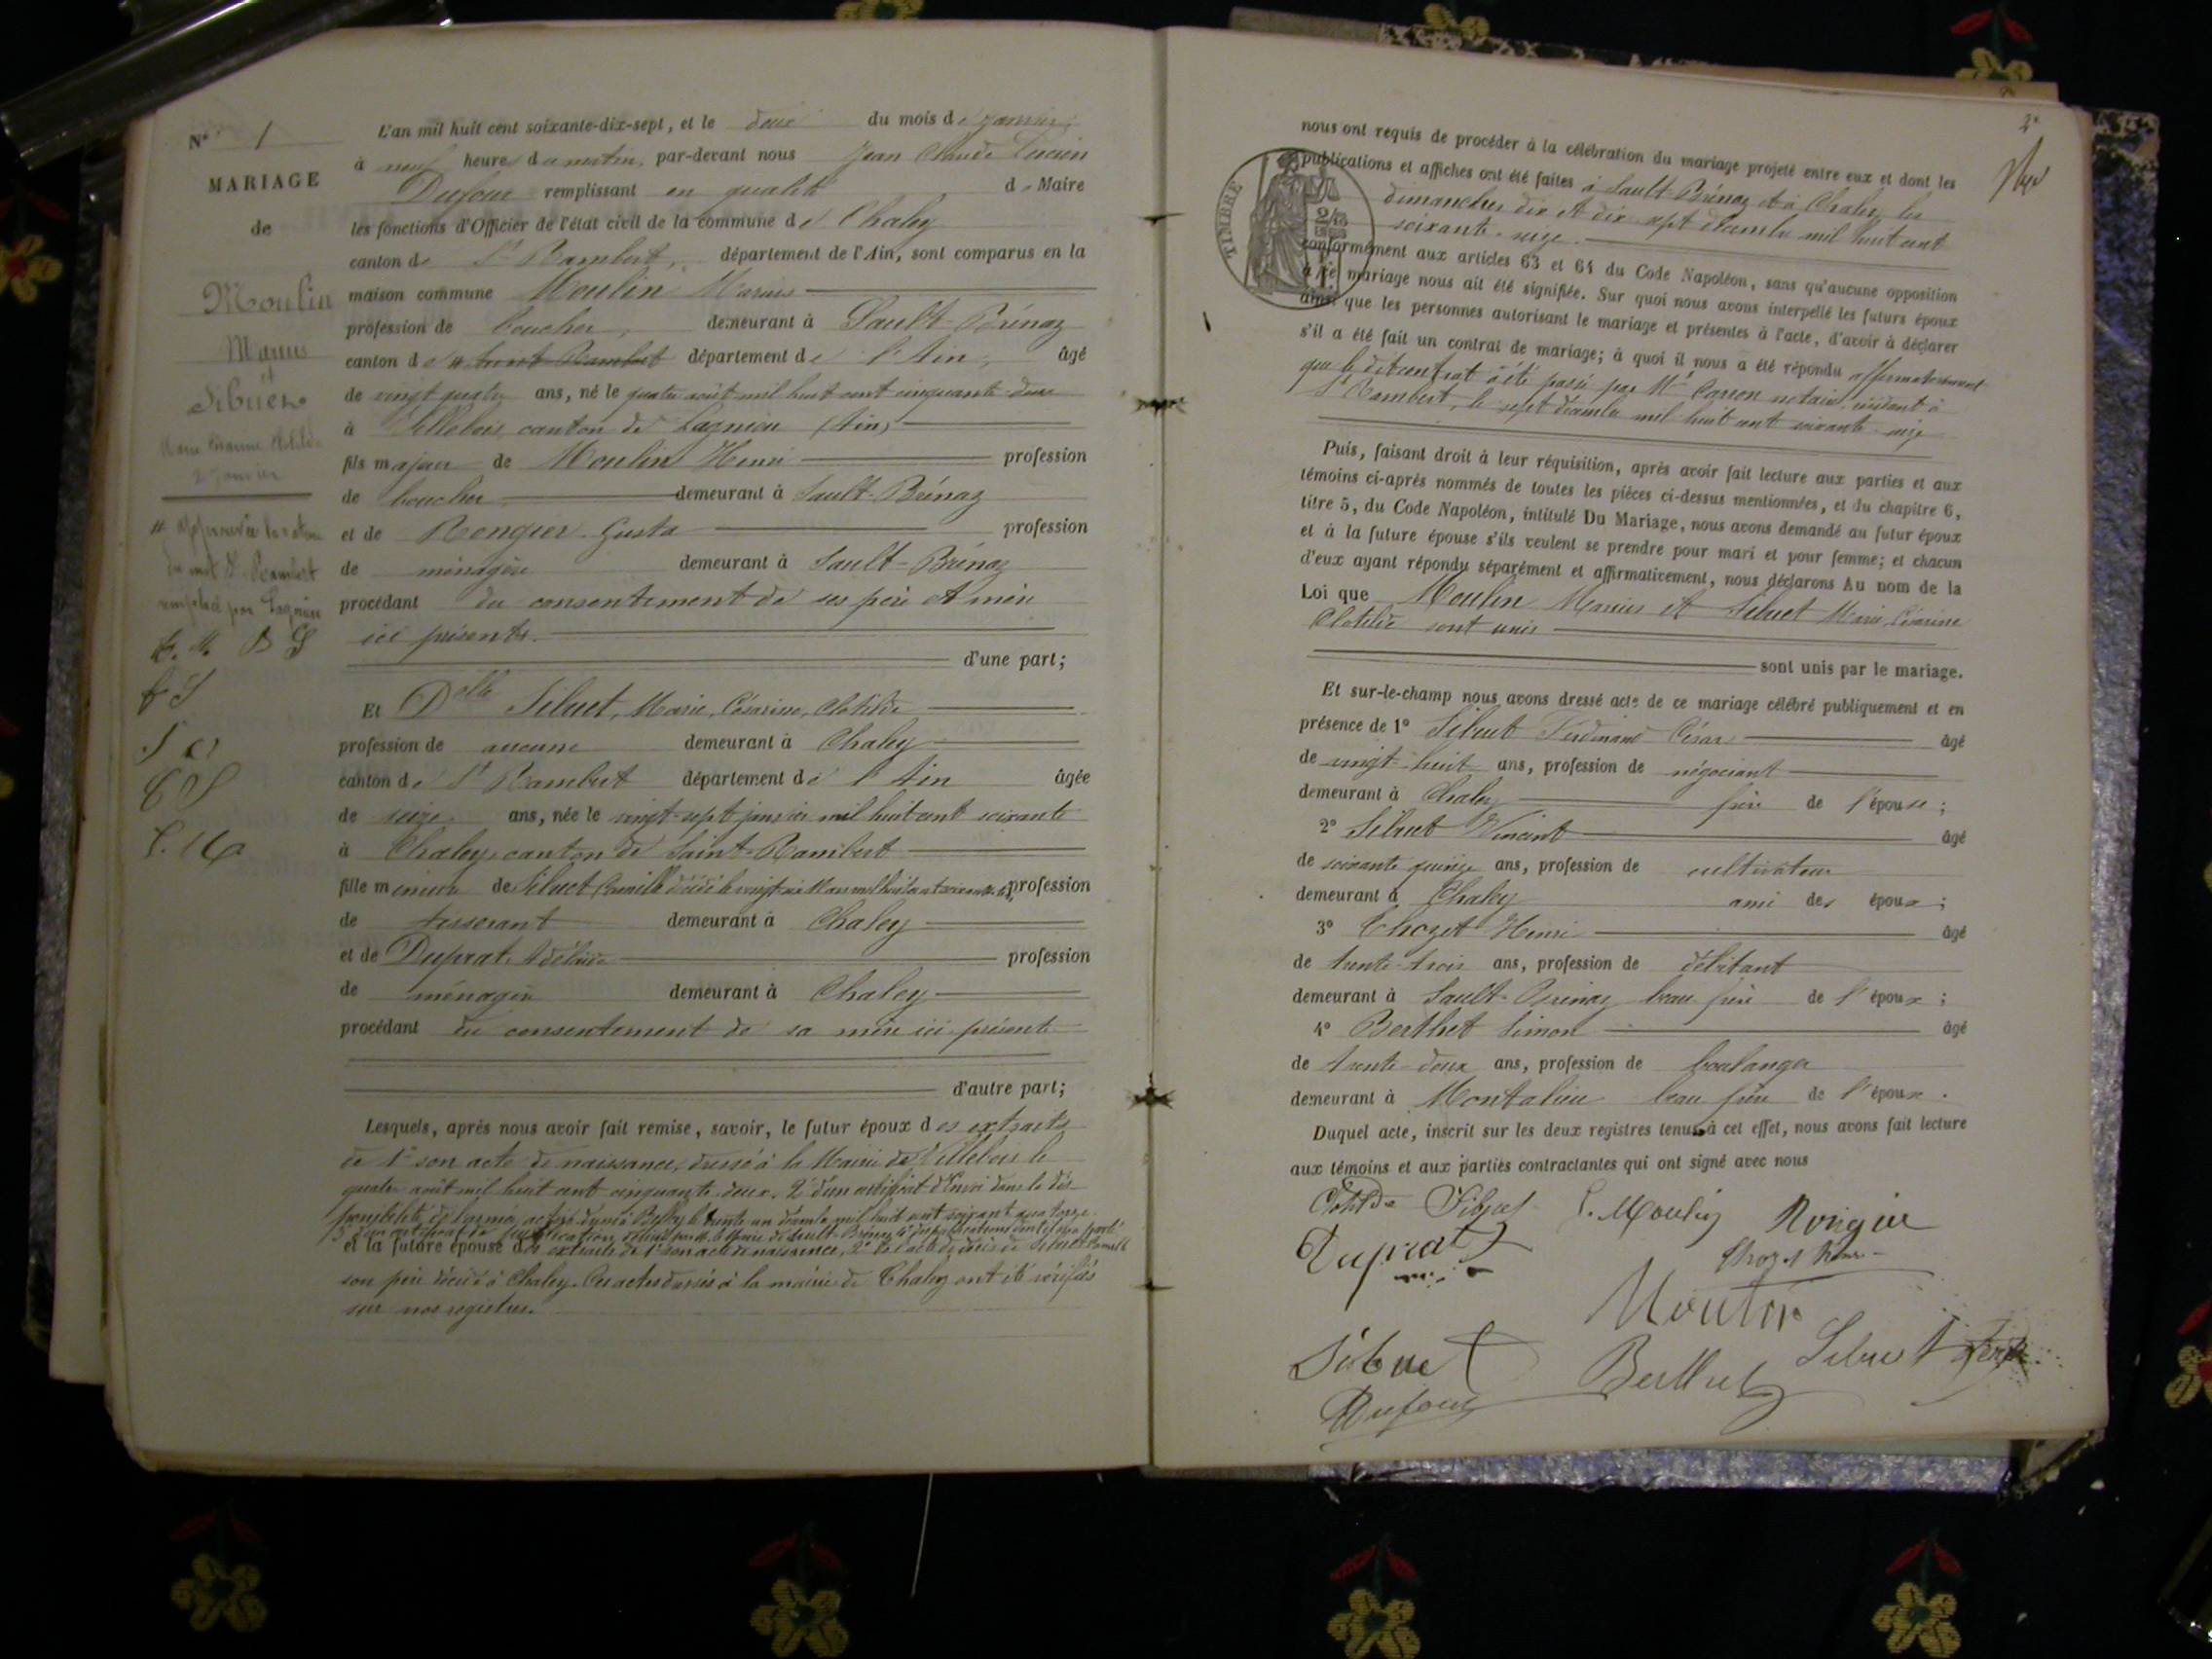 N° 1
MARIAGE
de
Moulin
Marius
et
Sibuet
Marie Césarine Clotilde
2 Janvier
# approuvé la rature
du mot St Rambert
remplacé par Lagnieu
L'an mil huit cent soixante-dix-sept, et le deux du mois de janvier
à neuf heures du matin, par-devant nous Jean Claude Lucien
Dufour remplissant en qualité de Maire
les fonctions d'Officier de l'état civil de la commune de Chaley
canton de St Rambert, département de l'Ain, sont comparus en la
maison commune Moulin Marius
profession de boucher, demeurant à Sault-Brénaz
canton de # Saint Rambert département de l'Ain, âgé
de vingt quatre ans, né le quatre août mil huit cent cinquante deux
à Villebois, canton de Lagnieu (Ain)
fils majeur de Moulin Henri profession
de boucher demeurant à Sault-Brénaz
et de Rongier Gusta profession
de ménagère demeurant à Sault-Brénaz
procédant du consentement de ses père et mère
ici présents.
d'une part;
Et Delle Sibuet, Marie, Césarine, Clotilde
profession de aucune demeurant à Chaley
canton de St Rambert département de l'Ain âgée
de seize ans, née le vingt-sept janvier mil huit cent soixante
à Chaley, canton de Saint-Rambert
fille mineure de Sibuet Camille décédé le vingt mil huit cent soixante profession
de tisserant demeurant à Chaley
et de Duprat, Adélaïde profession
de ménagère demeurant à Chaley
procédant du consentement de sa mère ici présente
d'autre part;
Lesquels, après nous avoir fait remise, savoir, le futur époux des extraits
de 1° son acte de naissance, dressé à la Mairie de Villebois le
quatre août mil huit cent cinquante deux. 2° d'un certificat d'envoi dans la dis
ponibilité de l'armée active, donné à Belley le trente un décembre mil huit cent soixant quatorze
3° d'un certificat de publication délivré par M. le Maire de Sault-Brénaz
et la future épouse des extraits de 1° son acte de naissance, 2° de l'acte de décès de Sibuet Camille
son père décédé à Chaley. Ces actes dressés à la mairie de Chaley ont été vérifiés
sur nos registres.
2e
TIMBRE
nous ont requis de procéder à la célébration du mariage projeté entre eux et dont les
publications et affiches ont été faites à Sault-Brénaz et à Chaley les
dimanches dix et dix sept décembre mil huit cent
soixante-seize.
conformément aux articles 63 et 64 du Code Napoléon, sans qu'aucune opposition
à ce mariage nous ait été signifiée. Sur quoi nous avons interpellé les futurs époux
ainsi que les personnes autorisant le mariage et présentes à l'acte, d'avoir à déclarer
s'il a été fait un contrat de mariage; à quoi il nous a été répondu affirmativement
que le dit contrat a été passé par Me Carron notaire, résidant à
St Rambert, le sept décembre mil huit cent soixante seize
Puis, faisant droit à leur réquisition, après avoir fait lecture aux parties et aux
témoins ci-après nommés de toutes les pièces ci-dessus mentionnées, et du chapitre 6,
titre 5, du Code Napoléon, intitulé Du Mariage, nous avons demandé au futur époux
et à la future épouse s'ils veulent se prendre pour mari et pour femme; et chacun
d'eux ayant répondu séparément et affirmativement, nous déclarons Au nom de la
Loi que Moulin Marius et Sibuet Marie Césarine
Clotilde sont unis
sont unis par le mariage.
Et sur-le-champ nous avons dressé acte de ce mariage célébré publiquement et en
présence de 1° Sibuet Ferdinand César âgé
de vingt-huit ans, profession de négociant
demeurant à Chaley frère de l'épouse;
2° Sibuet Vincent âgé
de soixante quinze ans, profession de cultivateur
demeurant à Chaley ami des époux;
3° Chozet Henri âgé
de trente-trois ans, profession de débitant
demeurant à Sault-Brénaz beau frère de l'époux;
4° Berthet Simon âgé
de trente-deux ans, profession de boulanger
demeurant à Montalieu beau frère de l'époux.
Duquel acte, inscrit sur les deux registres tenus à cet effet, nous avons fait lecture
aux témoins et aux parties contractantes qui ont signé avec nous
Clotilde Sibuet Moulin Rongier
Duprat Chozet Henri
Moulin
Sibuet Berthet Sibuet Ferd
Dufour